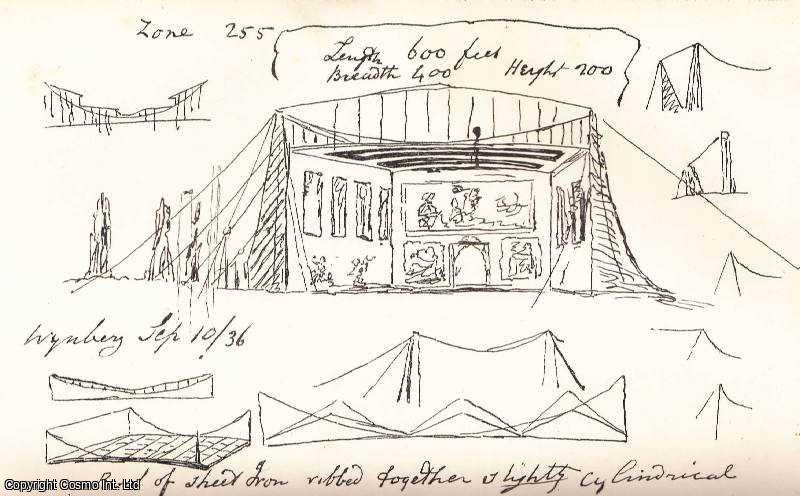 Zone 255
Length 600 feet
Breadth 400 Height 200
Wynberg Sep 10/36
of sheet Iron ribbed together slightly cylindrical
Copyright Cosmo Int. Ltd